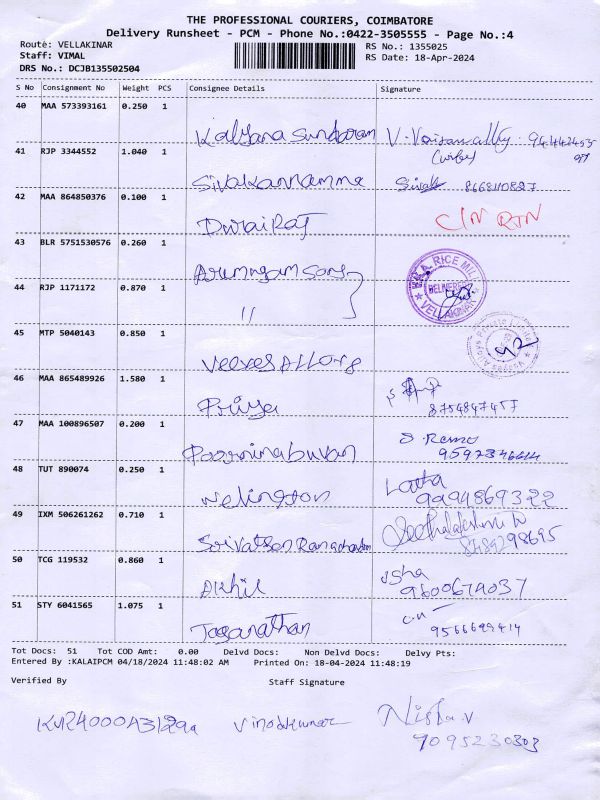 THE PROFESSIONAL COURIERS, COIMBATORE
Delivery Runsheet - PCM - Phone No.:0422-3505555 - Page No.:4
Route: VELLAKINAR
Staff: VIMAL
DRS No.: DCJB135502504
RS No.: 1355025
RS Date: 18-Apr-2024
S No Consignment No Weight PCS Consignee Details Signature
40 MAA 573393161 0.250 1
Kalyana Sundaram V.
41 RJP 3344552 1.040 1
Sivakannamma 8668110827
42 MAA 864850376 0.100 1
Durai Raj C/N RTN
43 BLR 5751530576 0.260 1
Arumugam Sons
44 RJP 1171172 0.870 1
"
RICE MILL
DELIVERED
VELLAKINAR
45 MTP 5040143 0.850 1
Veeves Alloys
46 MAA 865489926 1.580 1
Priya
8754847457
47 MAA 100896507 0.200 1
Poornimabuvan S. Remo
9592346614
48 TUT 890074 0.250 1
Welington Latha
9994869322
49 IXM 506261262 0.710 1
Srivatson Ramachandran Seethalakshmi
8489298695
50 TCG 119532 0.860 1
Akhil Usha
9600674037
51 STY 6041565 1.075 1
Jaganathan
9566699414
Tot Docs: 51 Tot COD Amt: 0.00 Delvd Docs: Non Delvd Docs: Delvy Pts:
Entered By :KALAIPCM 04/18/2024 11:48:02 AM Printed On: 18-04-2024 11:48:19
Verified By Staff Signature
Vinodkumar Nisha.V
9095230303